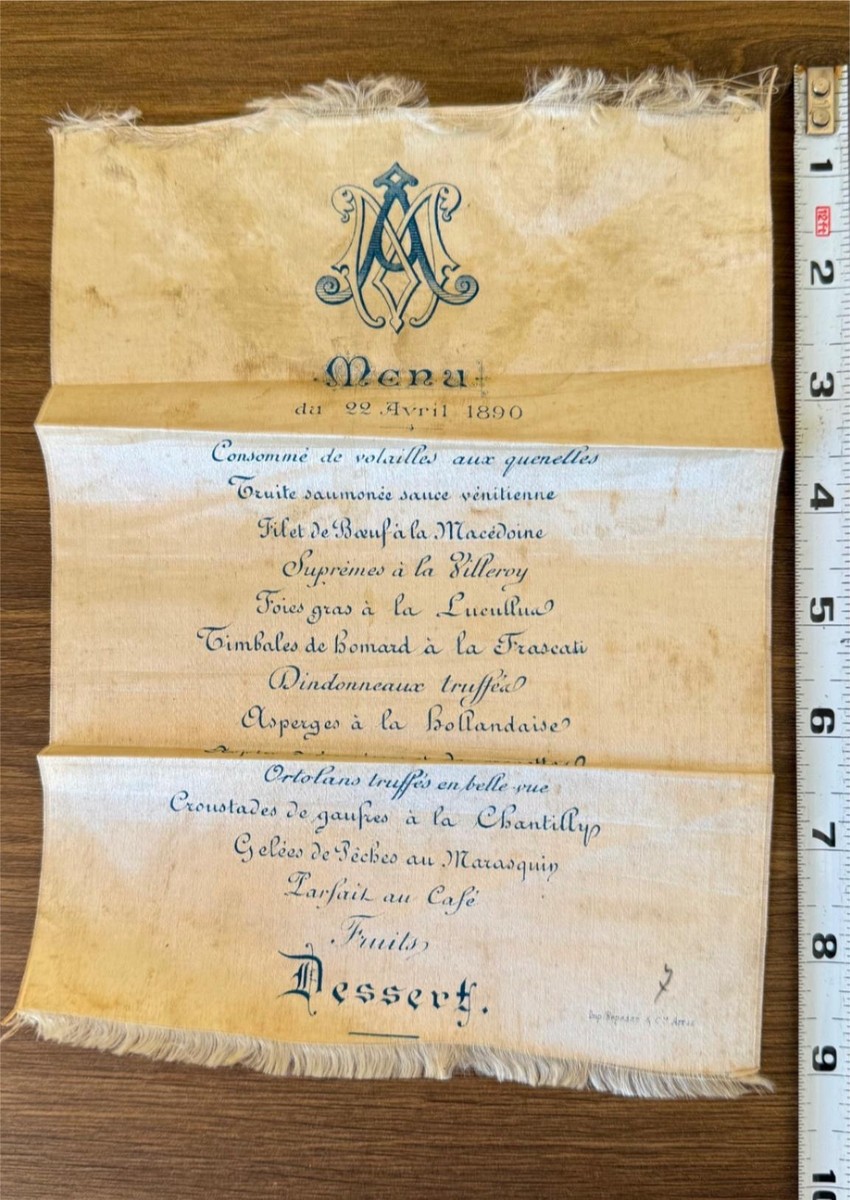 AM
Menu
du 22 Avril 1890
Consommé de volailles aux quenelles
Truite saumonée sauce vénitienne
Filet de Bœuf à la Macédoine
Suprêmes à la Villeroy
Foies gras à la Lucullus
Timbales de homard à la Frascati
Dindonneaux truffés
Asperges à la hollandaise
Ortolans truffés en belle-vue
Croustades de gaufres à la Chantilly
Gelées de Pêches au Marasquin
Parfait au Café
Fruits
Dessert.
7
Imp. & Cie Arras
1
2
3
4
5
6
7
8
9
10